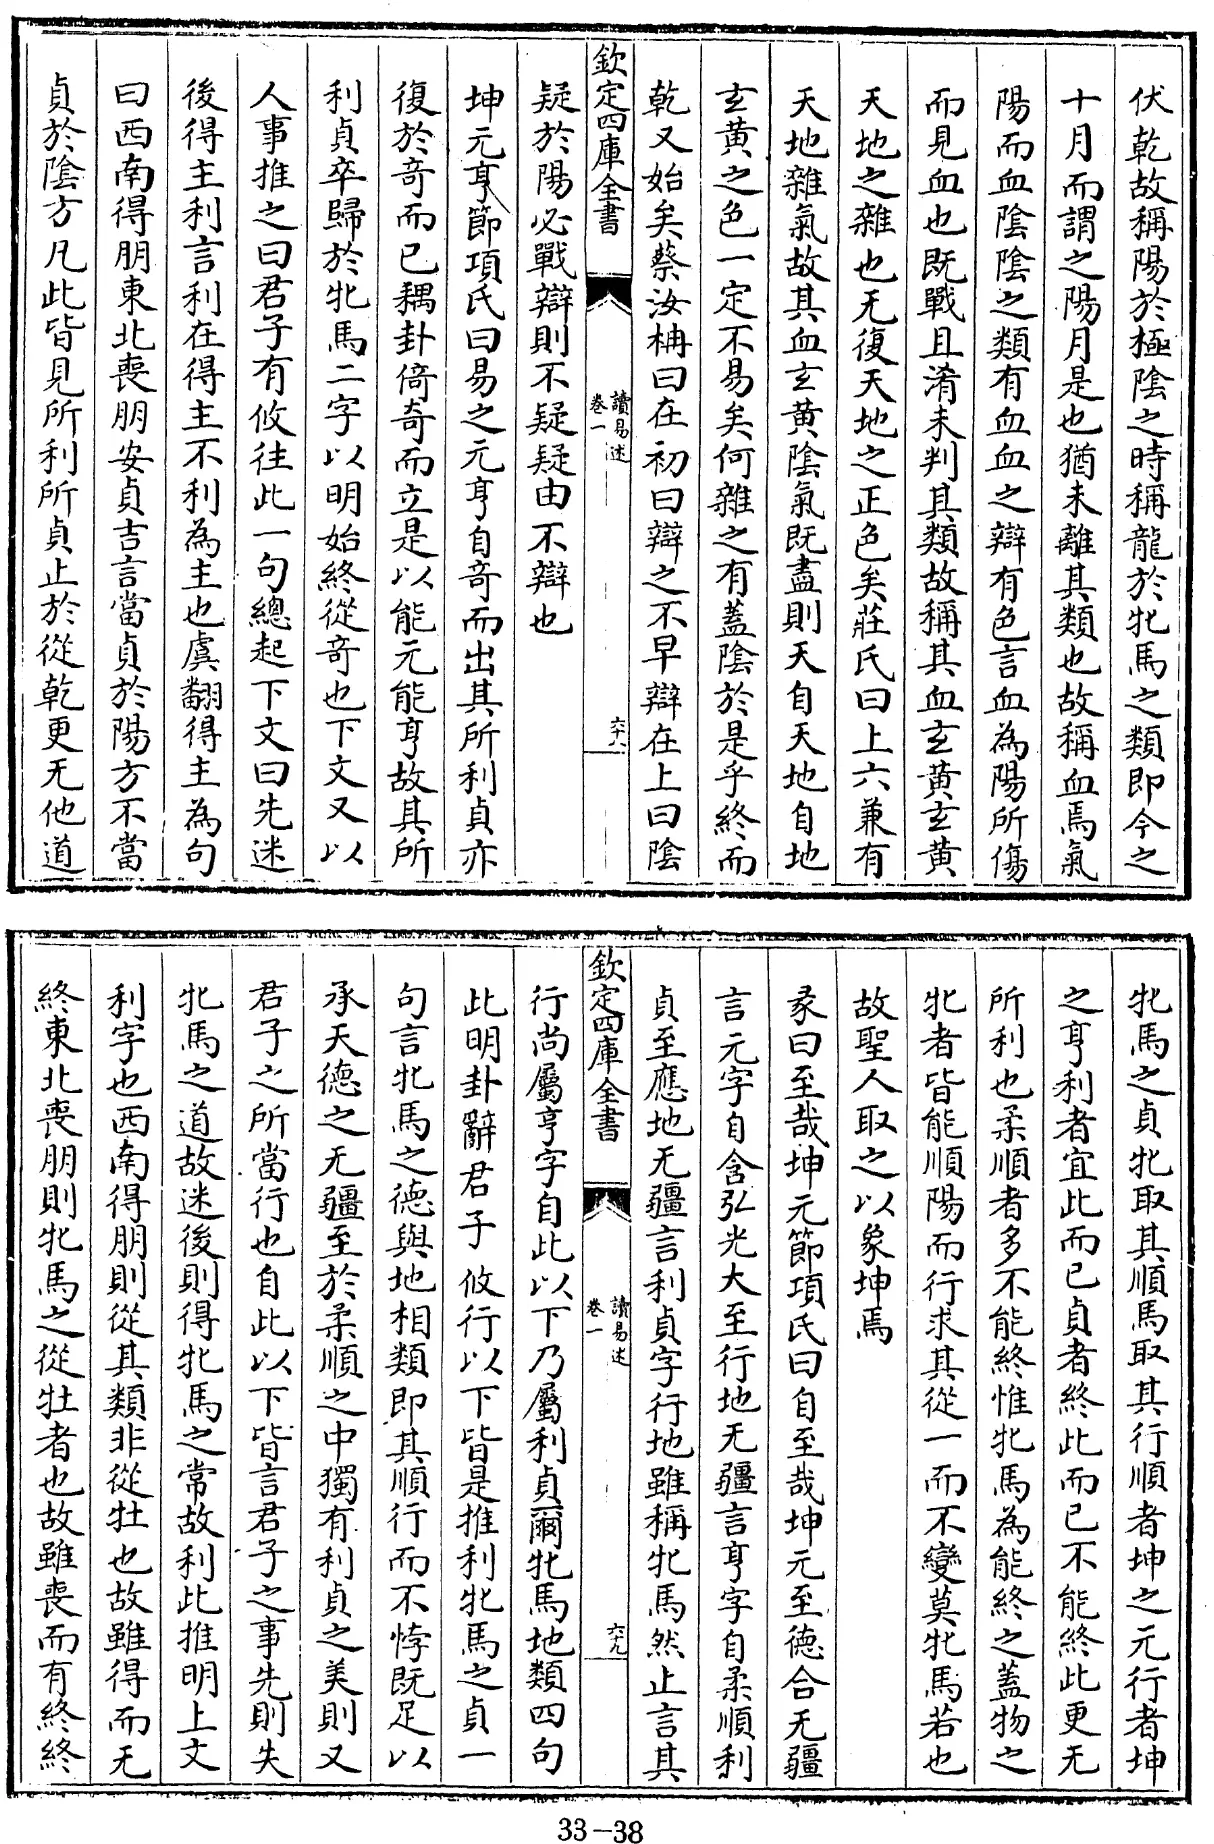 伏乾故稱陽於極陰之時稱龍於牝馬之類即今之
十月而謂之陽月是也猶未離其類也故稱血焉氣
陽而血陰陰之類有血血之辯有色言血為陽所傷
而見血也既戰且淆未判其類故稱其血玄黄玄黄
天地之雜也无復天地之正色矣莊氏曰上六兼有
天地雜氣故其血玄黄陰氣既盡則天自天地自地
玄黄之色一定不易矣何雜之有蓋陰於是乎終而
乾又始矣蔡汝柟曰在初曰辯之不早辯在上曰陰
欽定四庫全書
讀易述
卷一
六十八
疑於陽必戰辯則不疑疑由不辯也
坤元亨節項氏曰易之元亨自奇而出其所利貞亦
復於奇而已耦卦倚奇而立是以能元能亨故其所
利貞卒歸於牝馬二字以明始終從奇也下文又以
人事推之曰君子有攸往此一句總起下文曰先迷
後得主利言利在得主不利為主也虞翻得主為句
曰西南得朋東北喪朋安貞吉言當貞於陽方不當
貞於陰方凡此皆見所利所貞止於從乾更无他道
牝馬之貞牝取其順馬取其行順者坤之元行者坤
之亨利者宜此而已貞者終此而已不能終此更无
所利也柔順者多不能終惟牝馬為能終之蓋物之
牝者皆能順陽而行求其從一而不變莫牝馬若也
故聖人取之以象坤焉
彖曰至哉坤元節項氏曰自至哉坤元至德合无疆
言元字自含弘光大至行地无疆言亨字自柔順利
貞至應地无疆言利貞字行地雖稱牝馬然止言其
欽定四庫全書
讀易述
卷一
六十九
行尚屬亨字自此以下乃屬利貞爾牝馬地類四句
此明卦辭君子攸行以下皆是推利牝馬之貞一
句言牝馬之德與地相類即其順行而不悖既足以
承天德之无疆至於柔順之中獨有利貞之美則又
君子之所當行也自此以下皆言君子之事先則失
牝馬之道故迷後則得牝馬之常故利此推明上文
利字也西南得朋則從其類非從牡也故雖得而无
終東北喪朋則牝馬之從牡者也故雖喪而有終終
33-38